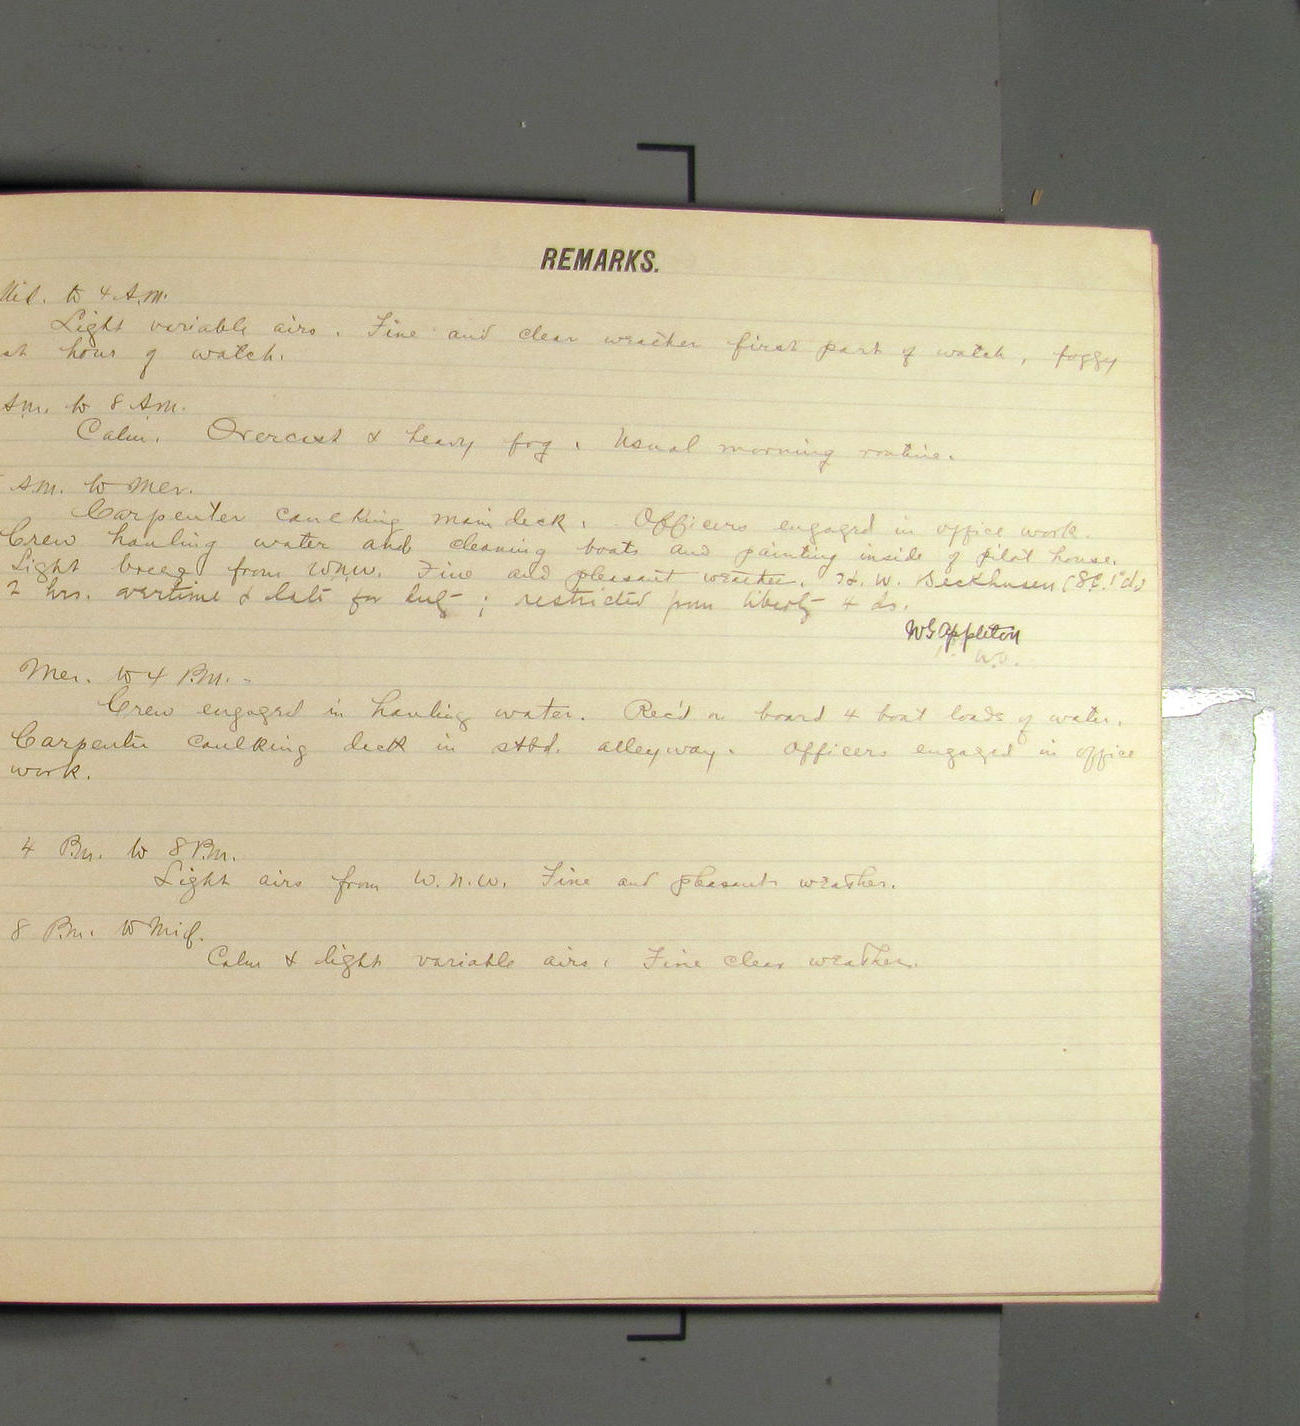 REMARKS.
Mid. to 4 A.M.
Light variable airs. Fine and clear weather first part of watch, foggy
hour of watch.
A.M. to 8 A.M.
Calm. Overcast & heavy fog. Usual morning routine.
A.M. to Mer.
Carpenter caulking main deck. Officers engaged in office work.
Crew hauling water and cleaning boats and painting inside of pilot house.
Light breeze from WNW. Fine and pleasant weather. W.
2 hrs. overtime & late for duty; restricted from liberty 4 ds.
W G Appleton
Mer. to 4 P.M.
Crew engaged in hauling water. Rec'd on board 4 boat loads of water.
Carpenter caulking deck in stbd. alleyway. Officers engaged in office
work.
4 P.m. to 8 P.m.
Light airs from W.N.W. Fine and pleasant weather.
8 P.m. to Mid.
Calm & light variable airs. Fine clear weather.